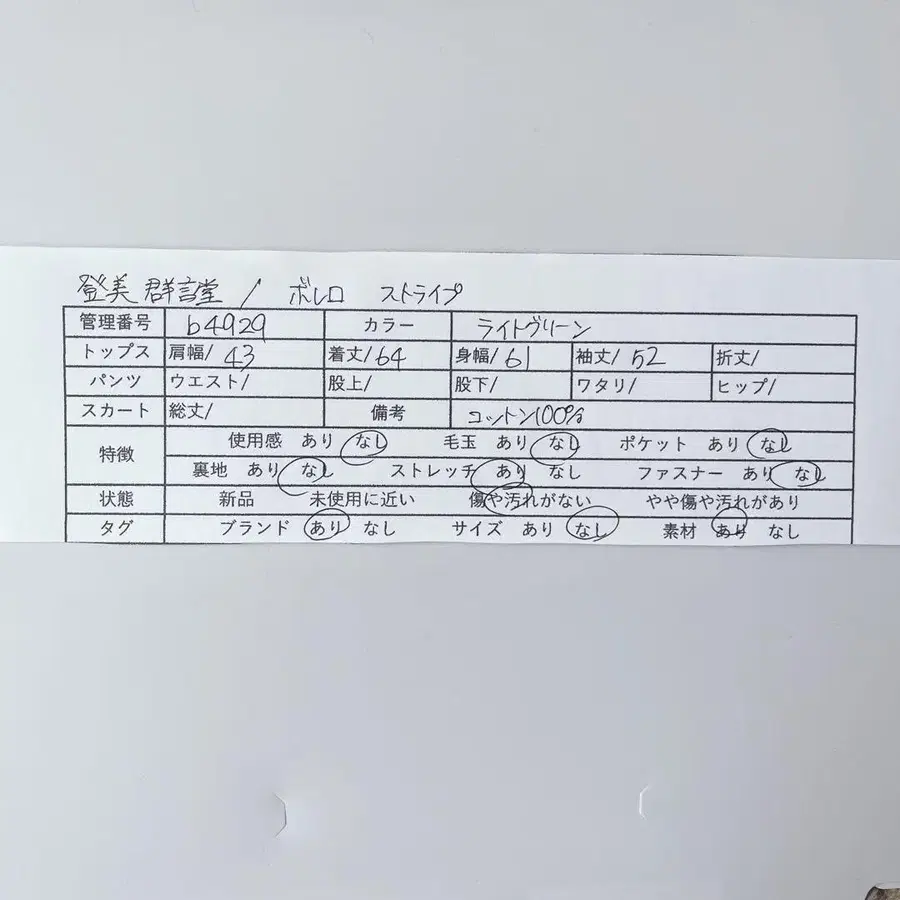 登美 群言堂 / ボレロ ストライプ
管理番号 b4929 カラー ライトグリーン
トップス 肩幅/ 43 着丈/ 64 身幅/ 61 袖丈/ 52 折丈/
パンツ ウエスト/ 股上/ 股下/ ワタリ/ ヒップ/
スカート 総丈/ 備考 コットン100%
特徴 使用感 あり なし 毛玉 あり なし ポケット あり なし
裏地 あり なし ストレッチ あり なし ファスナー あり なし
状態 新品 未使用に近い 傷や汚れがない やや傷や汚れがあり
タグ ブランド あり なし サイズ あり なし 素材 あり なし